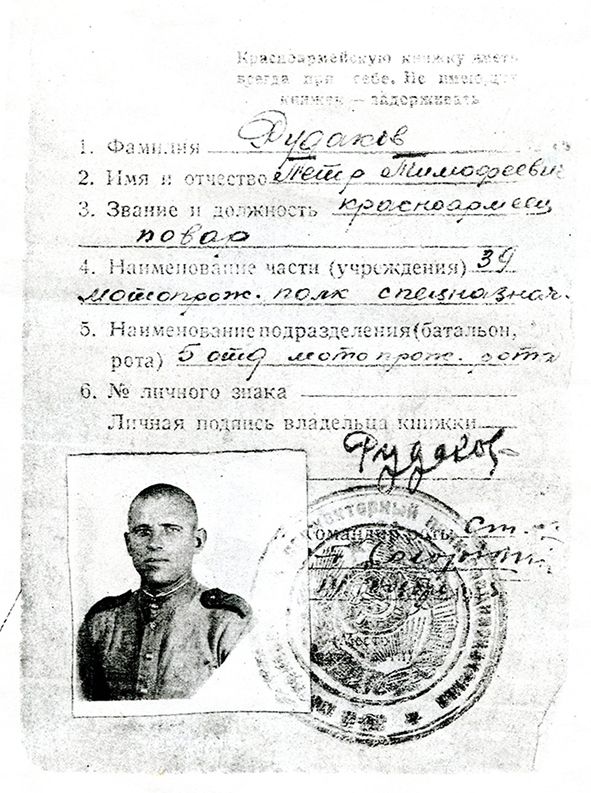 Красноармейскую книжку иметь
всегда при себе. Не имеющих
книжек — задерживать
1. Фамилия Рудаков
2. Имя и отчество Петр Тимофеевич
3. Звание и должность красноармеец
повар
4. Наименование части (учреждения) 39
мотопрож. полк спецназнач.
5. Наименование подразделения (батальон,
рота) 5 отд мотопрож. рота
6. № личного знака
Личная подпись владельца книжки
Рудаков
Командир роты ст.